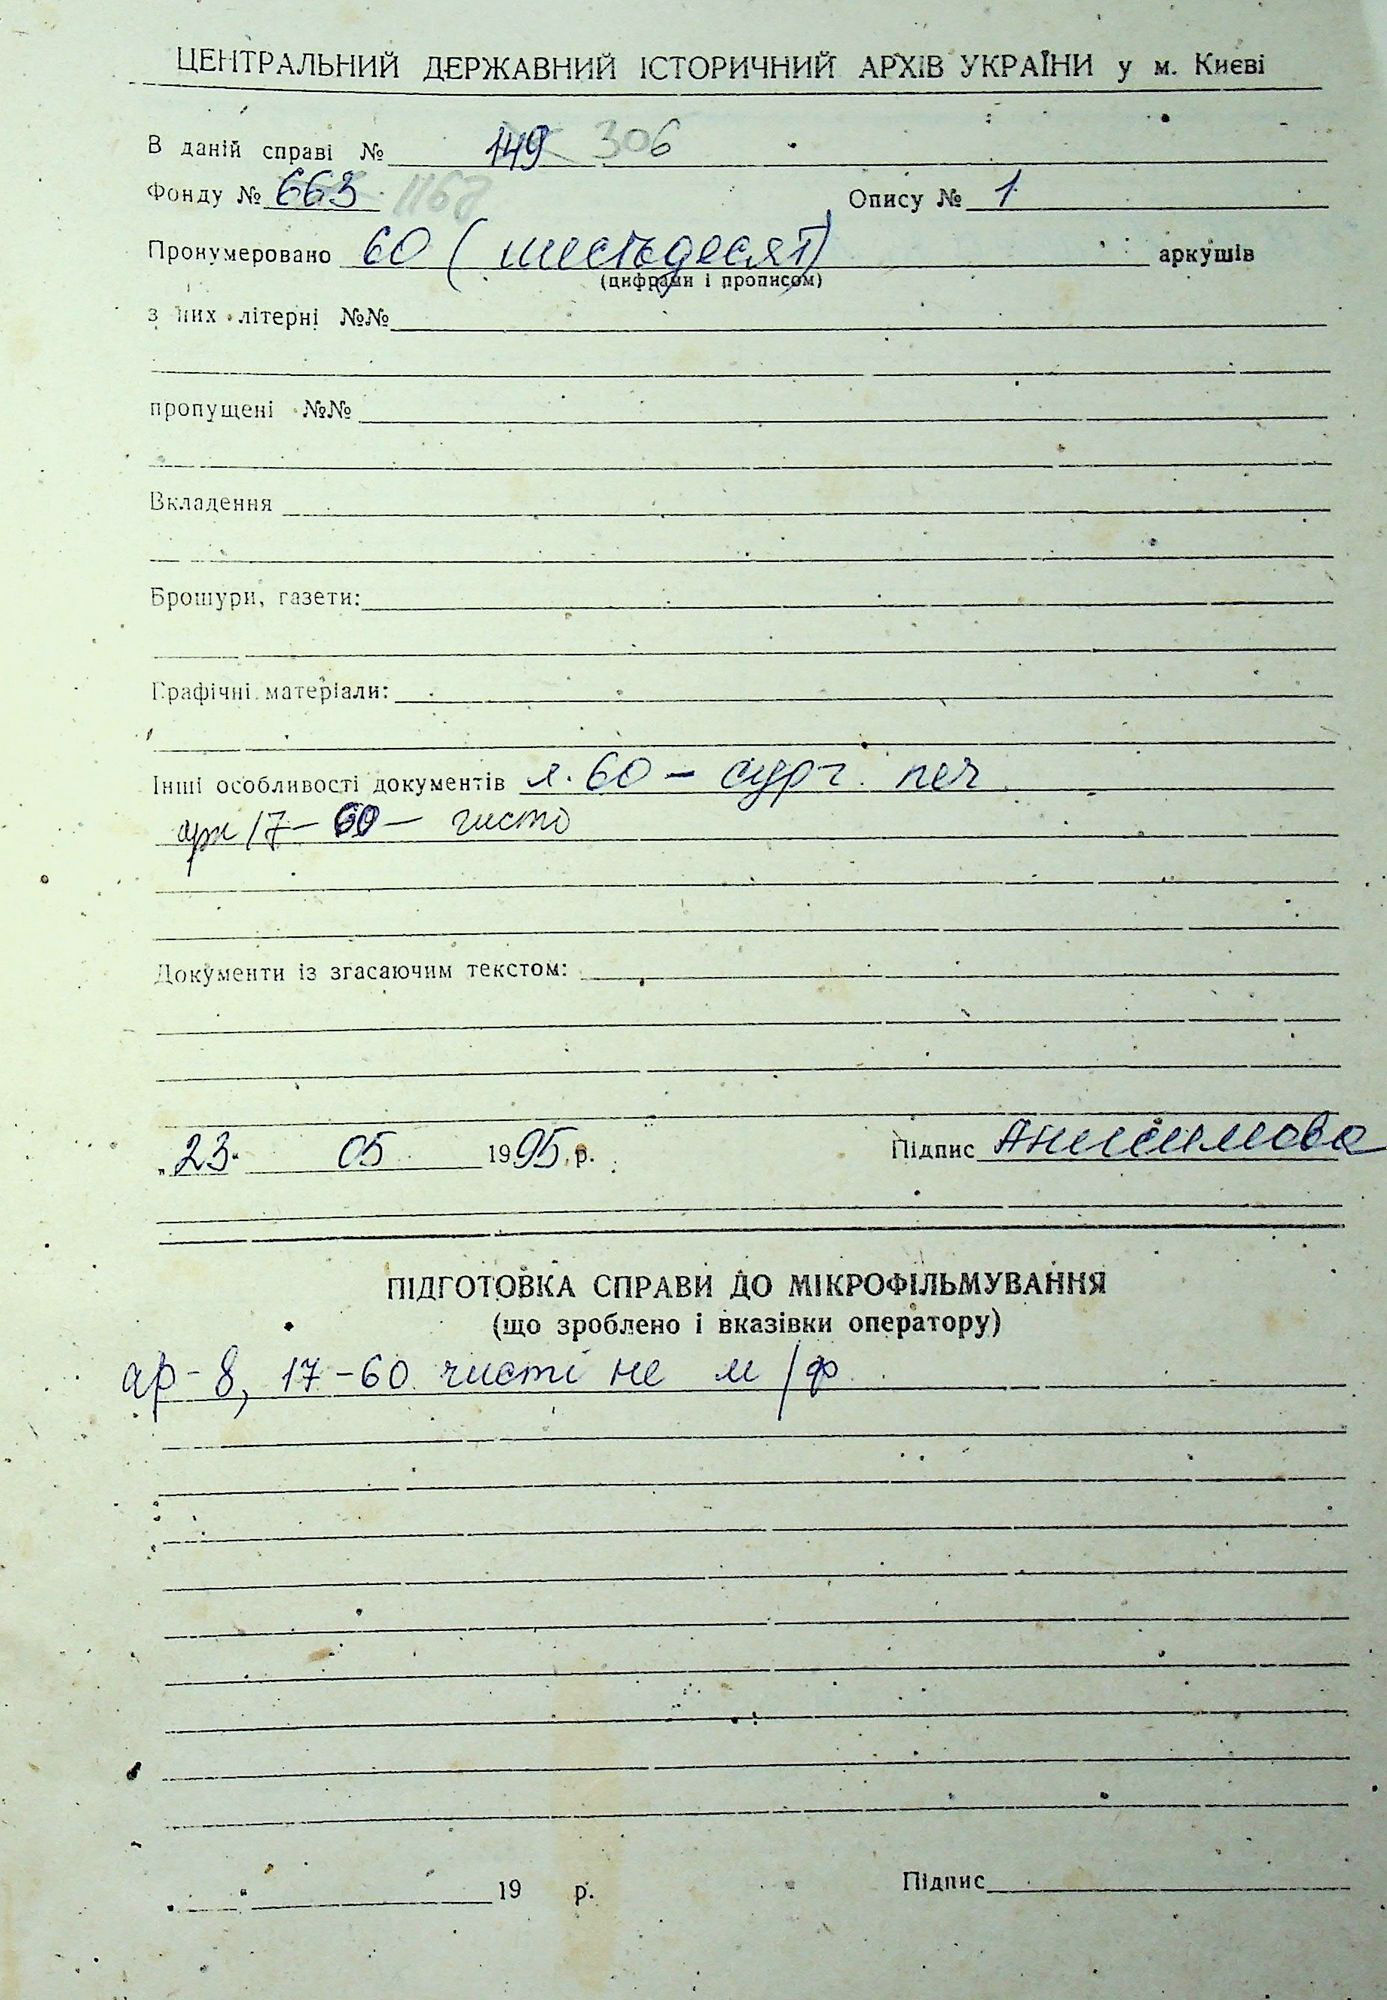 ЦЕНТРАЛЬНИЙ ДЕРЖАВНИЙ ІСТОРИЧНИЙ АРХІВ УКРАЇНИ у м. Києві
В даній справі № 149 306
Фонду № 663 1167 Опису № 1
Пронумеровано 60 (шестьдесят) аркушів
(цифрами і прописом)
з них літерні №№
пропущені №№
Вкладення
Брошури, газети:
Графічні матеріали:
Інші особливості документів л. 60 – сург. печ
арк 17 – 60 – чисто
Документи із згасаючим текстом:
„23. 05 1995 р. Підпис Анисимова
ПІДГОТОВКА СПРАВИ ДО МІКРОФІЛЬМУВАННЯ
(що зроблено і вказівки оператору)
ар- 8, 17-60 чисті не м/ф
19 р. Підпис